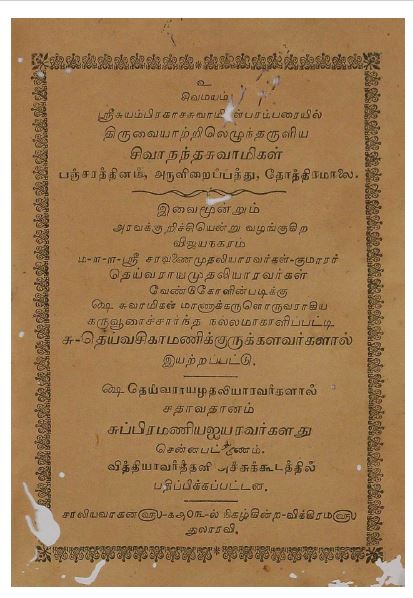 உ
சிவமயம்.
ஸ்ரீசுயம்பிரகாசசுவாமிகள்பரம்பரையில்
திருவையாற்றிலெழுந்தருளிய
சிவாநந்தசுவாமிகள்
பஞ்சரத்தினம், அருளிறைப்பத்து, தோத்திரமாலை.
இவைமூன்றும்
அரவக்குறிச்சியென்று வழங்குகிற
விஜயநகரம்
ம-ா-ா-ஸ்ரீ சரவணைமுதலியாரவர்கள்-குமாரர்
தெய்வராயமுதலியாரவர்கள்
வேண்கோளின்படிக்கு
௸ சுவாமிகள் மாணாக்கருளொருவராகிய
கருவூரைச்சார்ந்த நல்லமாகாளிப்பட்டி
சு-தெய்வசிகாமணிக்குருக்களவர்களால்
இயற்றப்பட்டு.
௸ தெய்வராயமுதலியாரவர்களால்
சதாவதானம்
சுப்பிரமணியஐயரவர்களது
சென்னபட்டணம்.
வித்தியாவர்த்தனி அச்சுக்கூடத்தில்
பதிப்பிக்கப்பட்டன.
சாலியவாகன௵-க௮௦௩-ல் நிகழ்கின்ற-விக்கிரம௵
துலாரவி.